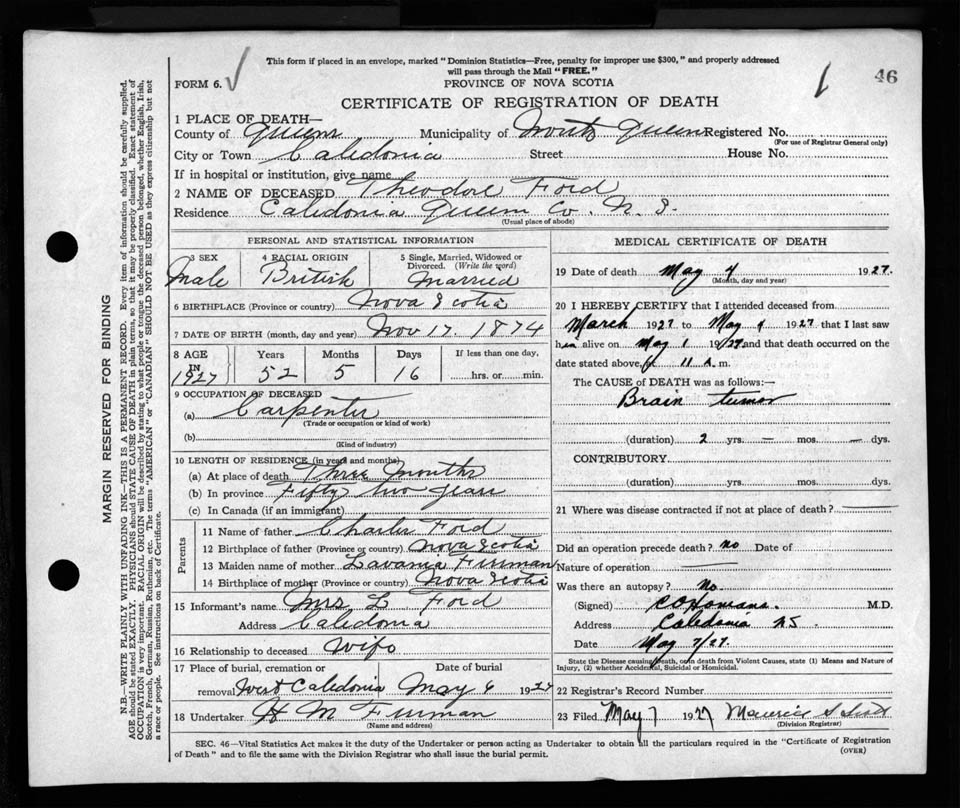 This form if placed in an envelope, marked "Dominion Statistics—Free, penalty for improper use $300," and properly addressed
will pass through the Mail "FREE."
FORM 6.
46
PROVINCE OF NOVA SCOTIA
CERTIFICATE OF REGISTRATION OF DEATH
1 PLACE OF DEATH—
County of Queens Municipality of North Queens Registered No.
(For use of Registrar General only)
City or Town Caledonia Street House No.
If in hospital or institution, give name
2 NAME OF DECEASED Theodore Ford
Residence Caledonia Queens Co. N. S.
(Usual place of abode)
PERSONAL AND STATISTICAL INFORMATION
3 SEX 4 RACIAL ORIGIN 5 Single, Married, Widowed or
Divorced. (Write the word)
Male British Married
6 BIRTHPLACE (Province or country) Nova Scotia
7 DATE OF BIRTH (month, day and year) Nov 17. 1874
8 AGE IN 1927 Years Months Days If less than one day,
52 5 16 hrs. or min.
9 OCCUPATION OF DECEASED
(a) Carpenter
(Trade or occupation or kind of work)
(b)
(Kind of industry)
10 LENGTH OF RESIDENCE (in years and months)
(a) At place of death Three months
(b) In province Fifty two years
(c) In Canada (if an immigrant)
Parents
11 Name of father Charles Ford
12 Birthplace of father (Province or country) Nova Scotia
13 Maiden name of mother Lavania Firman
14 Birthplace of mother (Province or country) Nova Scotia
15 Informant's name Mrs L Ford
Address Caledonia
16 Relationship to deceased Wife
17 Place of burial, cremation or Date of burial
removal West Caledonia May 6 1927
18 Undertaker H M Firman
(Name and address)
MEDICAL CERTIFICATE OF DEATH
19 Date of death May 4 1927.
(Month, day and year)
20 I HEREBY CERTIFY that I attended deceased from
March 1927 to May 4 1927 that I last saw
him alive on May 1 1927 and that death occurred on the
date stated above, at 11 A. m.
The CAUSE of DEATH was as follows:—
Brain tumor
(duration) 2 yrs. — mos. — dys.
CONTRIBUTORY
(duration) yrs. mos. dys.
21 Where was disease contracted if not at place of death?
Did an operation precede death? No Date of
Nature of operation
Was there an autopsy? No.
(Signed) M.D.
Address Caledonia NS
Date May 7/27.
State the Disease causing Death, or on death from Violent Causes, state (1) Means and Nature of
Injury, (2) whether Accidental, Suicidal or Homicidal.
22 Registrar's Record Number
23 Filed May 7 1927 Maurice
(Division Registrar)
SEC. 46—Vital Statistics Act makes it the duty of the Undertaker or person acting as Undertaker to obtain all the particulars required in the "Certificate of Registration
of Death" and to file the same with the Division Registrar who shall issue the burial permit. (OVER)
MARGIN RESERVED FOR BINDING
N.B.—WRITE PLAINLY WITH UNFADING INK—THIS IS A PERMANENT RECORD. Every item of information should be carefully supplied.
AGE should be stated EXACTLY. PHYSICIANS should STATE CAUSE OF DEATH in plain terms, so that it may be properly classified. Exact statement of
OCCUPATION is very important. RACIAL ORIGIN will be described by stating to what people or tongue the deceased person belonged, whether English, Irish,
Scotch, French, German, Russian, Ruthenian, etc. The terms "AMERICAN" or "CANADIAN" SHOULD NOT BE USED as they express citizenship but not
a race or people. See instructions on back of Certificate.